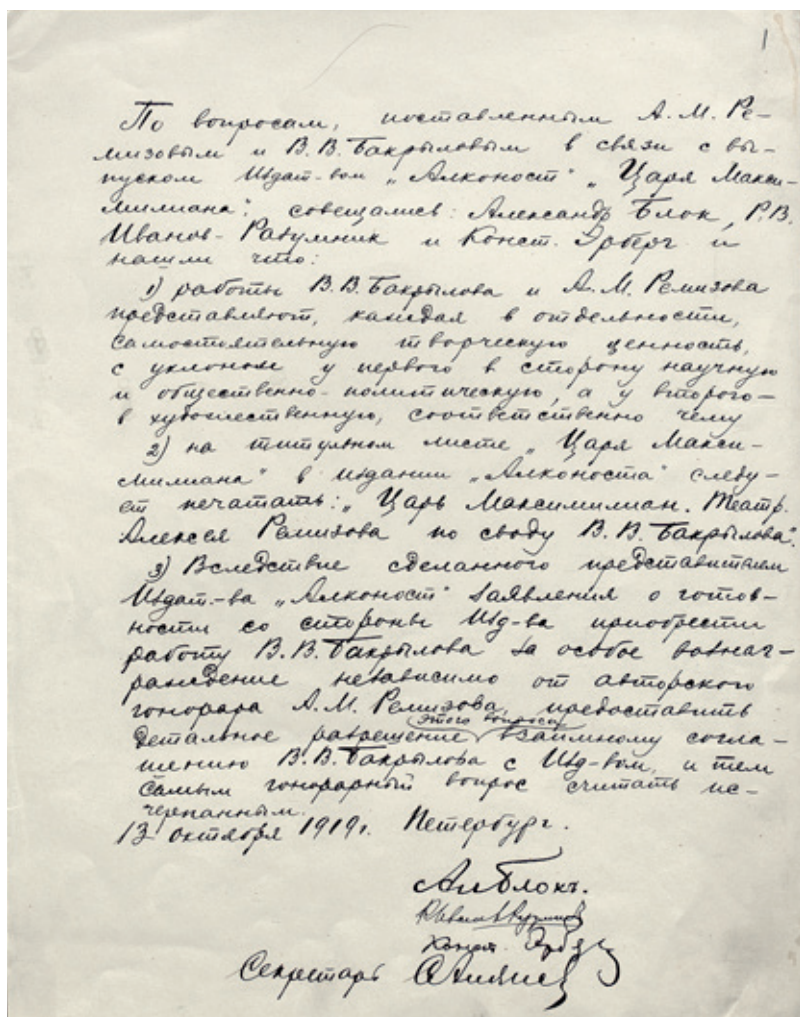 1
По вопросам, поставленным А. М. Ре-
мизовым и В. В. Бакрыловым в связи с вы-
пуском Издат-вом „Алконост“ „Царя Макси-
милиана“, совещались: Александр Блок, Р. В.
Иванов-Разумник и Конст. Эрберг и
нашли что:
1) работы В. В. Бакрылова и А. М. Ремизова
представляют, каждая в отдельности,
самостоятельную творческую ценность,
с уклоном у первого в сторону научную
и общественно-политическую, а у второго –
в художественную, соответственно чему
2) на титульном листе „Царя Макси-
милиана“ в издании „Алконоста“ следу-
ет печатать: „Царь Максимилиан. Театр.
Алексея Ремизова по своду В. В. Бакрылова“.
3) Вследствие сделанного представителем
Издат.-ва „Алконост“ заявления о готов-
ности со стороны Изд-ва приобрести
работу В. В. Бакрылова за особое вознаг-
раждение независимо от авторского
гонорара А. М. Ремизова, предоставить
детальное разрешение этого вопроса взаимному согла-
шению В. В. Бакрылова с Изд-вом, и тем
самым гонорарный вопрос считать ис-
черпанным.
13 октября 1919 г. Петербург.
Ал Блокъ.
Конст. Эрберг
Секретарь